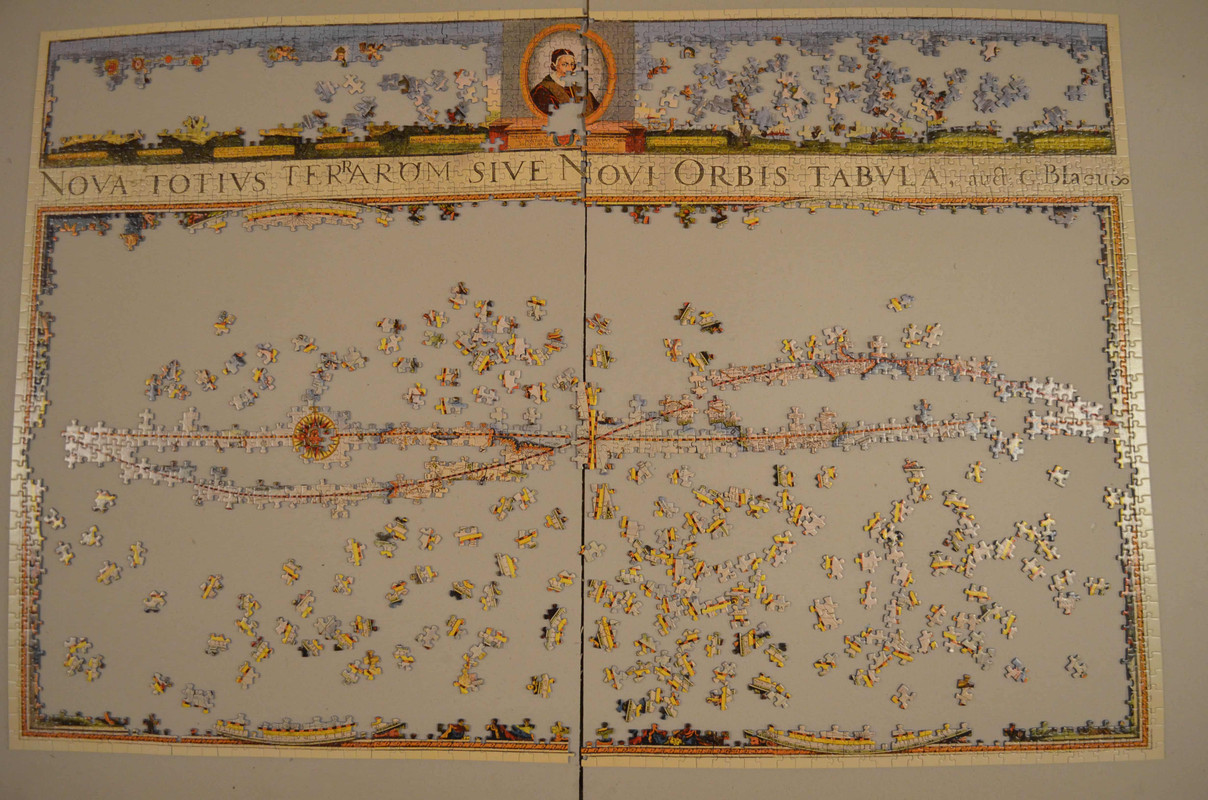 NOVA TOTIVS TERRARUM SIVE NOVI ORBIS TABVLA, auct. G. Blaeuw